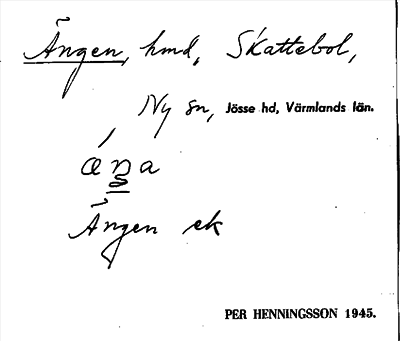 Ängen, hmd, Skattebol,
Ny sn, Jösse hd, Värmlands län.
Ängen ek
PER HENNINGSSON 1945.